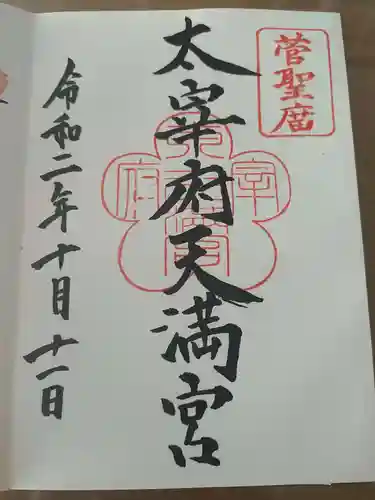 菅聖庿
太宰府天満宮
令和二年十月十一日